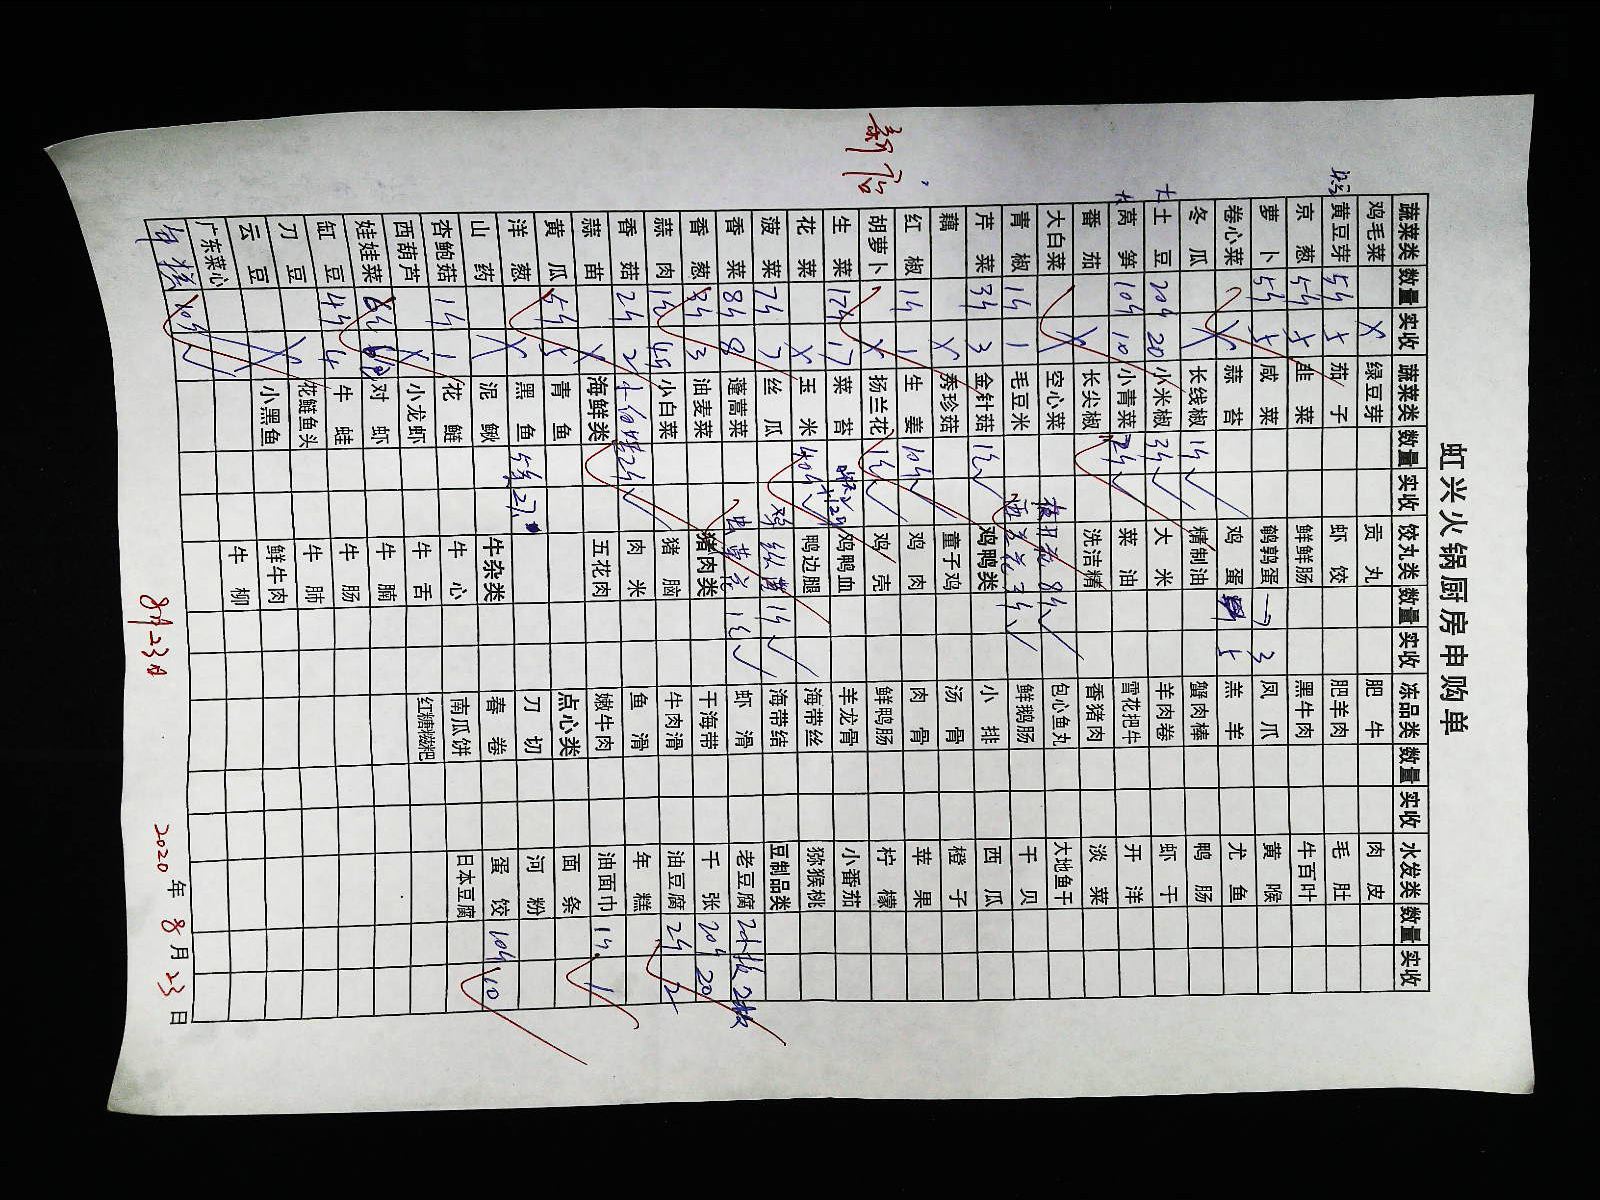 虹兴火锅厨房申购单
新店
蔬菜类 数量 实收 蔬菜类 数量 实收 饺丸类 数量 实收 冻品类 数量 实收 水发类 数量 实收
鸡毛菜 X 绿豆芽 贡丸 肥牛 肉皮
黄豆芽 5斤 5 茄子 虾饺 肥羊肉 毛肚
京葱 5斤 5 韭菜 鲜鲜肠 黑牛肉 牛百叶
萝卜 5斤 5 咸菜 鹌鹑蛋 3 凤爪 黄喉
卷心菜 X 蒜苔 鸡蛋 羔羊 尤鱼
冬瓜 X 长线椒 1斤 精制油 蟹肉棒 鸭肠
大土豆 20斤 20 小米椒 3斤 大米 羊肉卷 虾干
莴笋 10斤 10 小青菜 2斤 菜油 雪花把牛 开洋
番茄 X 长尖椒 洗洁精 香猪肉 淡菜
大白菜 X 空心菜 8斤 包心鱼丸 大地鱼干
青椒 1斤 1 毛豆米 3斤 鲜鹅肠 干贝
芹菜 3斤 3 金针菇 1包 鸡鸭类 小排 西瓜
藕 X 秀珍菇 童子鸡 汤骨 橙子
红椒 1斤 1 生姜 10斤 鸡肉 肉骨 苹果
胡萝卜 X 扬兰花 1包 鸡壳 鲜鸭肠 柠檬
生菜 17斤 17 菜苔 鸡鸭血 羊龙骨 小番茄
花菜 X 玉米 40斤 鸭边腿 海带丝 猕猴桃
菠菜 7斤 7 丝瓜 海带结 豆制品类
香菜 8斤 8 蓬蒿菜 虫草花 1包 虾滑 老豆腐 2板 2板
香葱 3斤 3 油麦菜 猪肉类 干海带 千张 20斤 20
蒜肉 小白菜 猪脑 牛肉滑 油豆腐 2斤 2
香菇 2斤 2 肉米 鱼滑 年糕
蒜苗 X 海鲜类 五花肉 嫩牛肉 油面巾 1斤 1
黄瓜 5斤 5 青鱼 点心类 面条
洋葱 X 黑鱼 刀切 河粉
山药 X 泥鳅 牛杂类 春卷 蛋饺 10斤 10
杏鲍菇 1斤 1 花鲢 牛心 南瓜饼 日本豆腐
西葫芦 X 小龙虾 牛舌 红糖糍粑
娃娃菜 6斤 6 对虾 牛腩
缸豆 4斤 4 牛蛙 牛肠
刀豆 X 花鲢鱼头 牛肺
云豆 X 小黑鱼 鲜牛肉
广东菜心 牛柳
年糕 10斤
8月23日 2020年8月23日